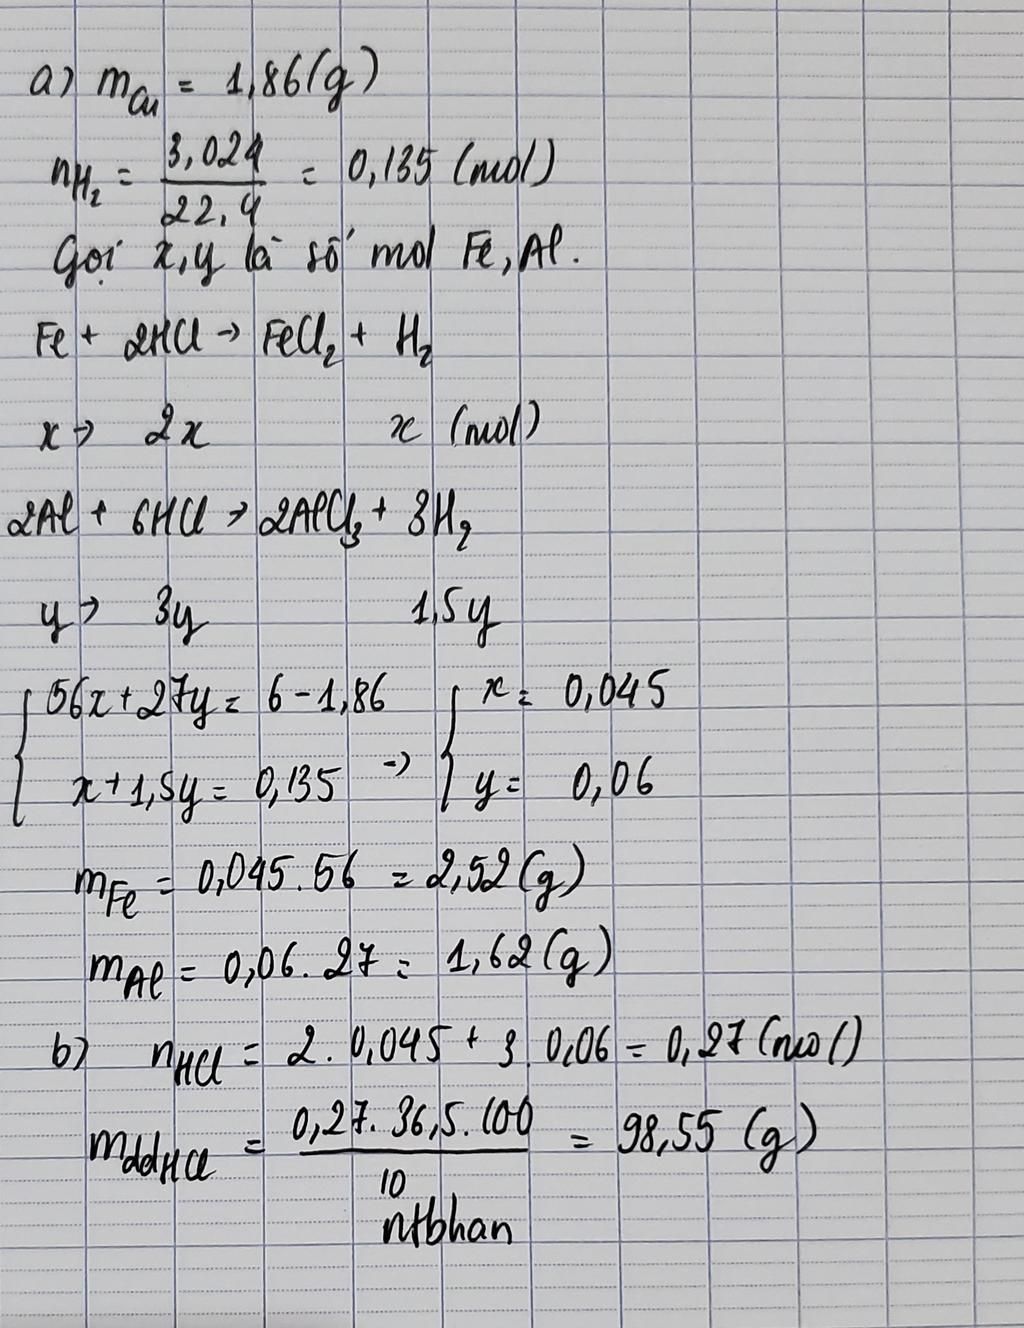 a) m_Cu = 1,86(g)
n_H₂ = 3,024/22,4 = 0,135 (mol)
Gọi x,y là số mol Fe, Al.
Fe + 2HCl → FeCl₂ + H₂
x → 2x x (mol)
2Al + 6HCl → 2AlCl₃ + 3H₂
y → 3y 1,5y
{ 56x + 27y = 6 - 1,86 { x = 0,045
x + 1,5y = 0,135 → y = 0,06
m_Fe = 0,045.56 = 2,52(g)
m_Al = 0,06.27 = 1,62(g)
b) n_HCl = 2.0,045 + 3.0,06 = 0,27(mol)
m_ddHCl = 0,27.36,5.100/10 = 98,55 (g)
ntbhan